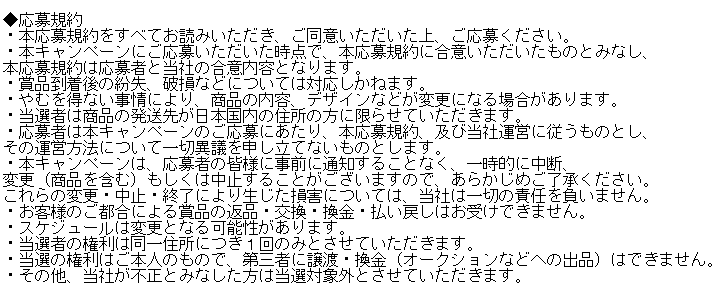 ◆応募規約
・本応募規約をすべてお読みいただき、ご同意いただいた上、ご応募ください。
・本キャンペーンにご応募いただいた時点で、本応募規約に合意いただいたものとみなし、
本応募規約は応募者と当社の合意内容となります。
・賞品到着後の紛失、破損などについては対応しかねます。
・やむを得ない事情により、商品の内容、デザインなどが変更になる場合があります。
・当選者は商品の発送先が日本国内の住所の方に限らせていただきます。
・応募者は本キャンペーンのご応募にあたり、本応募規約、及び当社運営に従うものとし、
その運営方法について一切異議を申し立てないものとします。
・本キャンペーンは、応募者の皆様に事前に通知することなく、一時的に中断、
変更（商品を含む）もしくは中止することがございますので、あらかじめご了承ください。
これらの変更・中止・終了により生じた損害については、当社は一切の責任を負いません。
・お客様のご都合による賞品の返品・交換・換金・払い戻しはお受けできません。
・スケジュールは変更となる可能性があります。
・当選者の権利は同一住所につき１回のみとさせていただきます。
・当選の権利はご本人のもので、第三者に譲渡・換金（オークションなどへの出品）はできません。
・その他、当社が不正とみなした方は当選対象外とさせていただきます。